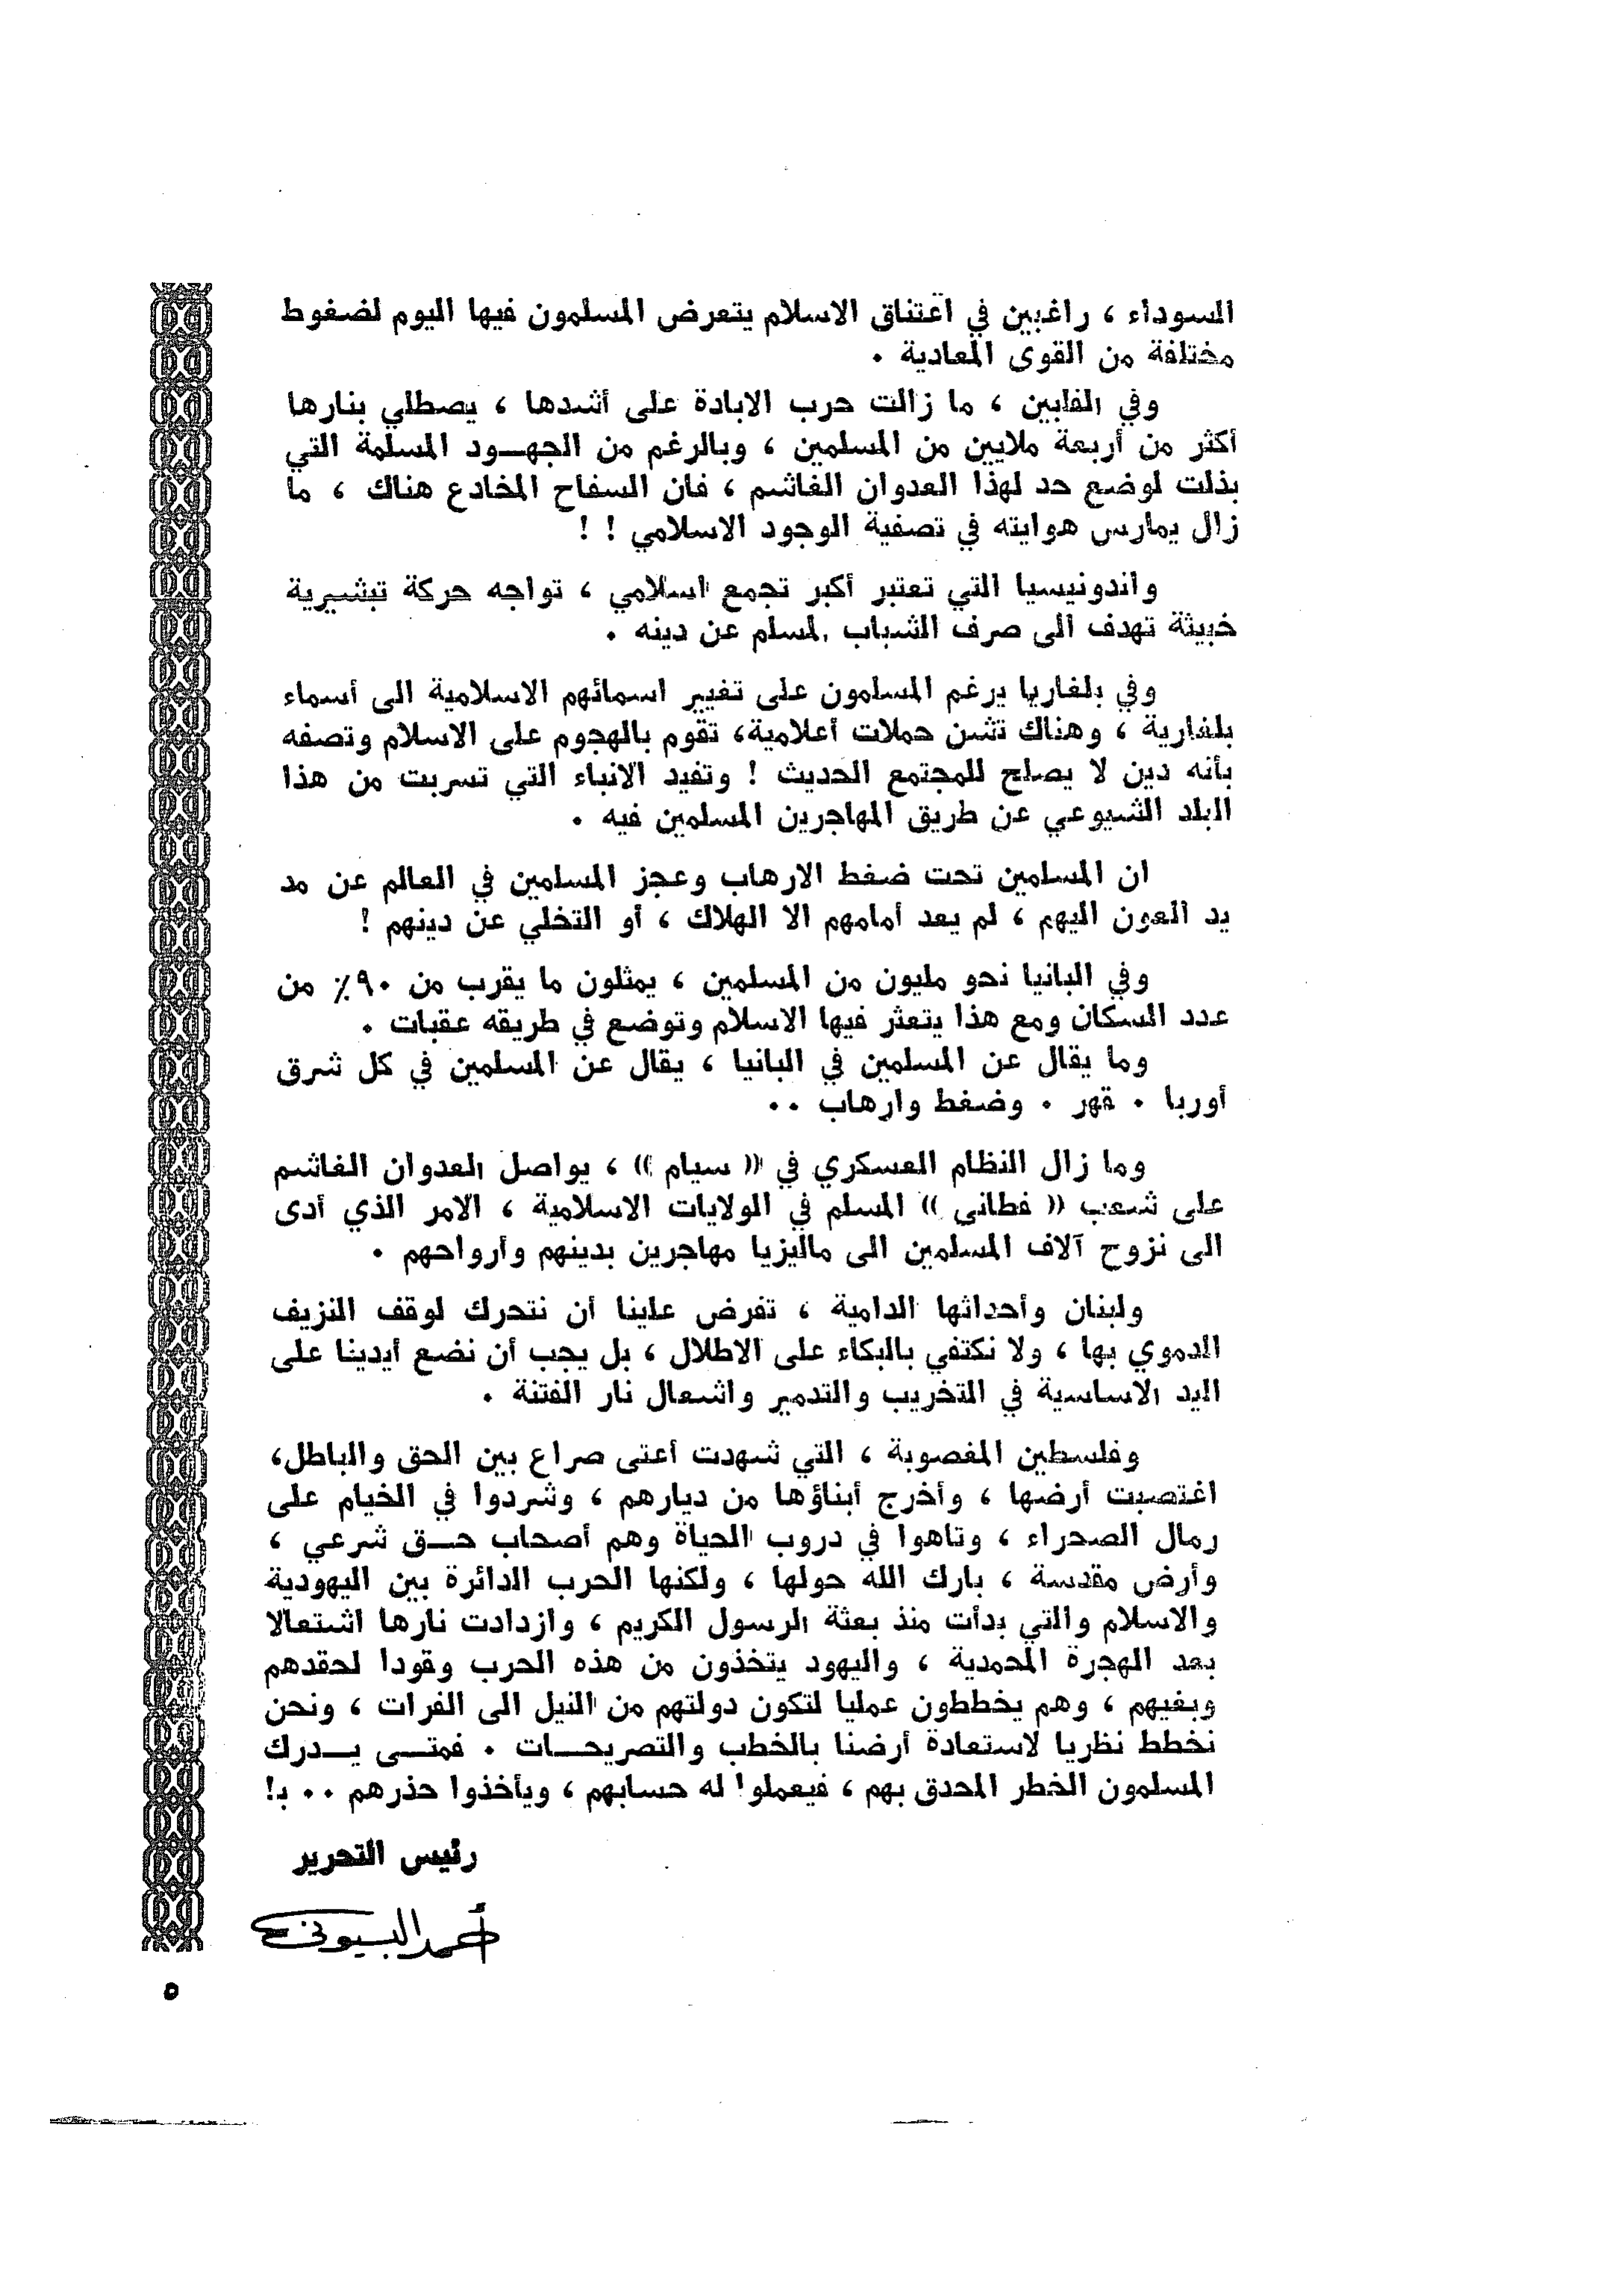 السوداء ، راغبين في اعتناق الاسلام يتعرض المسلمون فيها اليوم لضغوط
مختلفة من القوى المعادية .
وفي الفلبين ، ما زالت حرب الابادة على أشدها ، يصطلي بنارها
أكثر من أربعة ملايين من المسلمين ، وبالرغم من الجهود المسلمة التي
بذلت لوضع حد لهذا العدوان الغاشم ، فان السفاح المخادع هناك ، ما
زال يمارس هوايته في تصفية الوجود الاسلامي ! !
واندونيسيا التي تعتبر أكبر تجمع اسلامي ، تواجه حركة تبشيرية
خبيثة تهدف الى صرف الشباب المسلم عن دينه .
وفي بلغاريا يرغم المسلمون على تغيير اسمائهم الاسلامية الى أسماء
بلغارية ، وهناك تشن حملات أعلامية، تقوم بالهجوم على الاسلام وتصفه
بأنه دين لا يصلح للمجتمع الحديث ! وتفيد الانباء التي تسربت من هذا
البلد الشيوعي عن طريق المهاجرين المسلمين فيه .
ان المسلمين تحت ضغط الارهاب وعجز المسلمين في العالم عن مد
يد العون اليهم ، لم يعد أمامهم الا الهلاك ، أو التخلي عن دينهم !
وفي البانيا نحو مليون من المسلمين ، يمثلون ما يقرب من ٩٠٪ من
عدد السكان ومع هذا يتعثر فيها الاسلام وتوضع في طريقه عقبات .
وما يقال عن المسلمين في البانيا ، يقال عن المسلمين في كل شرق
أوربا . قهر . وضغط وارهاب ..
وما زال النظام العسكري في (( سيام )) ، يواصل العدوان الغاشم
على شعب (( فطانى )) المسلم في الولايات الاسلامية ، الامر الذي أدى
الى نزوح آلاف المسلمين الى ماليزيا مهاجرين بدينهم وأرواحهم .
ولبنان وأحداثها الدامية ، تفرض علينا أن نتحرك لوقف النزيف
الدموي بها ، ولا نكتفي بالبكاء على الاطلال ، بل يجب أن نضع أيدينا على
اليد الاساسية في التخريب والتدمير واشعال نار الفتنة .
وفلسطين المغصوبة ، التي شهدت أعتى صراع بين الحق والباطل،
اغتصبت أرضها ، وأخرج أبناؤها من ديارهم ، وشردوا في الخيام على
رمال الصحراء ، وتاهوا في دروب الحياة وهم أصحاب حق شرعي ،
وأرض مقدسة ، بارك الله حولها ، ولكنها الحرب الدائرة بين اليهودية
والاسلام والتي بدأت منذ بعثة الرسول الكريم ، وازدادت نارها اشتعالا
بعد الهجرة المحمدية ، واليهود يتخذون من هذه الحرب وقودا لحقدهم
وبغيهم ، وهم يخططون عمليا لتكون دولتهم من النيل الى الفرات ، ونحن
نخطط نظريا لاستعادة أرضنا بالخطب والتصريحات . فمتى يدرك
المسلمون الخطر المحدق بهم ، فيعملوا له حسابهم ، ويأخذوا حذرهم ..
رئيس التحرير
أحمد البسيوني
٥